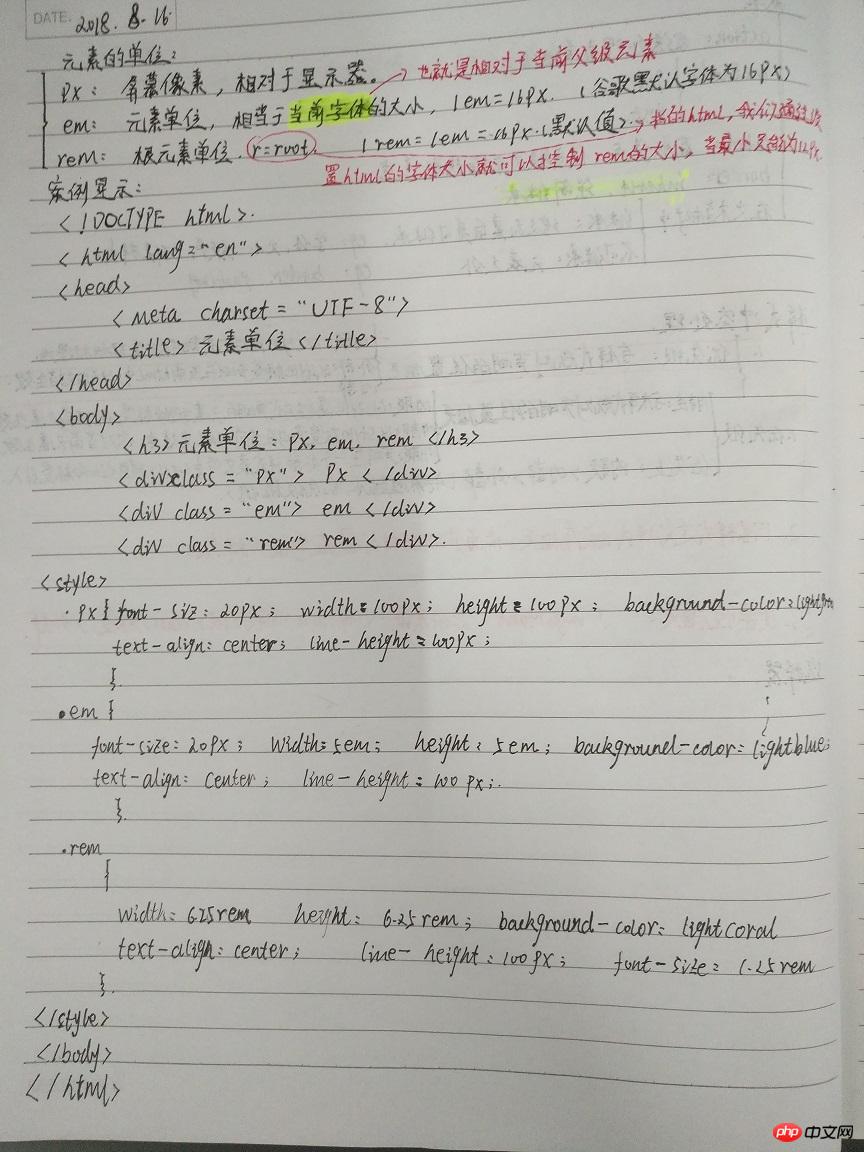 DATE: 2018. 8. 16.
元素的单位:
px: 屏幕像素, 相对于显示器。 也就是相对于当前父级元素
em: 元素单位, 相当于当前字体的大小, 1em=16px. (谷歌黑犬认字体为16px)
rem: 根元素单位. r=root. 1rem=1em=16px.(黑犬认值). 指的html, 我们通过设
置html的字体大小就可以控制 rem的大小, 当最小只能为12px.
案例显示:
<!DOCTYPE html>.
<html lang="en">
<head>
<meta charset = "UTF-8">
<title> 元素单位 </title>
</head>
<body>
<h3> 元素单位: px, em, rem </h3>
<div class = "px"> px </div>
<div class = "em"> em </div>
<div class = "rem"> rem </div>.
<style>
.px{ font-siz: 20px; width: 100px; height: 100px; background-color:
text-align: center; line-height: 100px;
}.
.em {
font-size: 20px; width: 5em; height: 5em; background-color: lightblue;
text-align: center; line-height: 100px;.
}.
.rem
{
width: 6.25rem height: 6.25rem; background-color: lightcoral
text-align: center; line-height: 100px; font-size: 1.25rem
}.
</style>
</body>
</html>
php 中文网